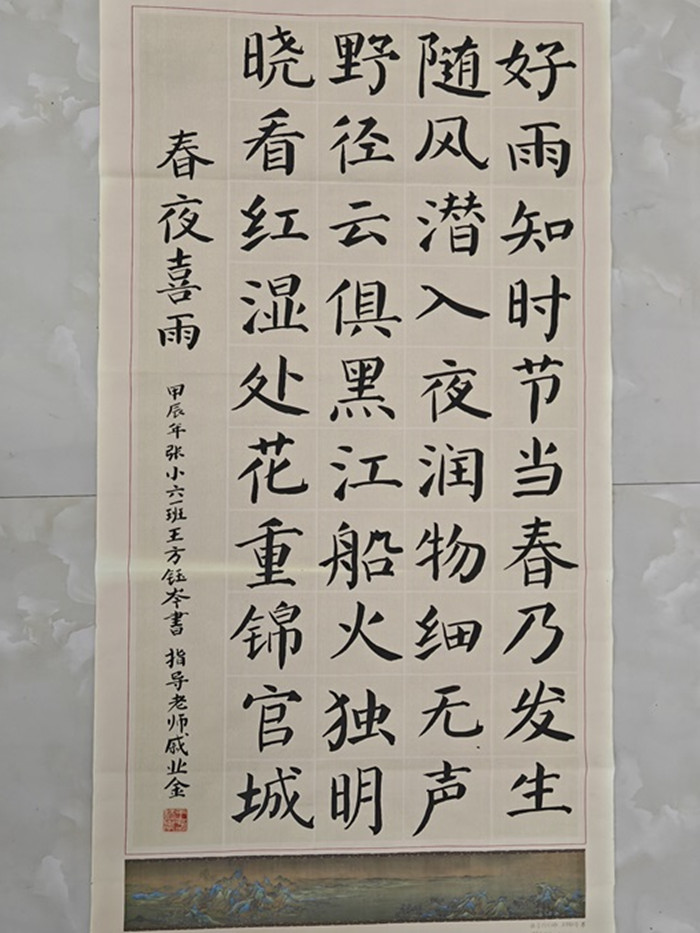 好雨知时节当春乃发生
随风潜入夜润物细无声
野径云俱黑江船火独明
晓看红湿处花重锦官城
春夜喜雨
甲辰年张小六一班王方钰岑書 指导老师戚业金